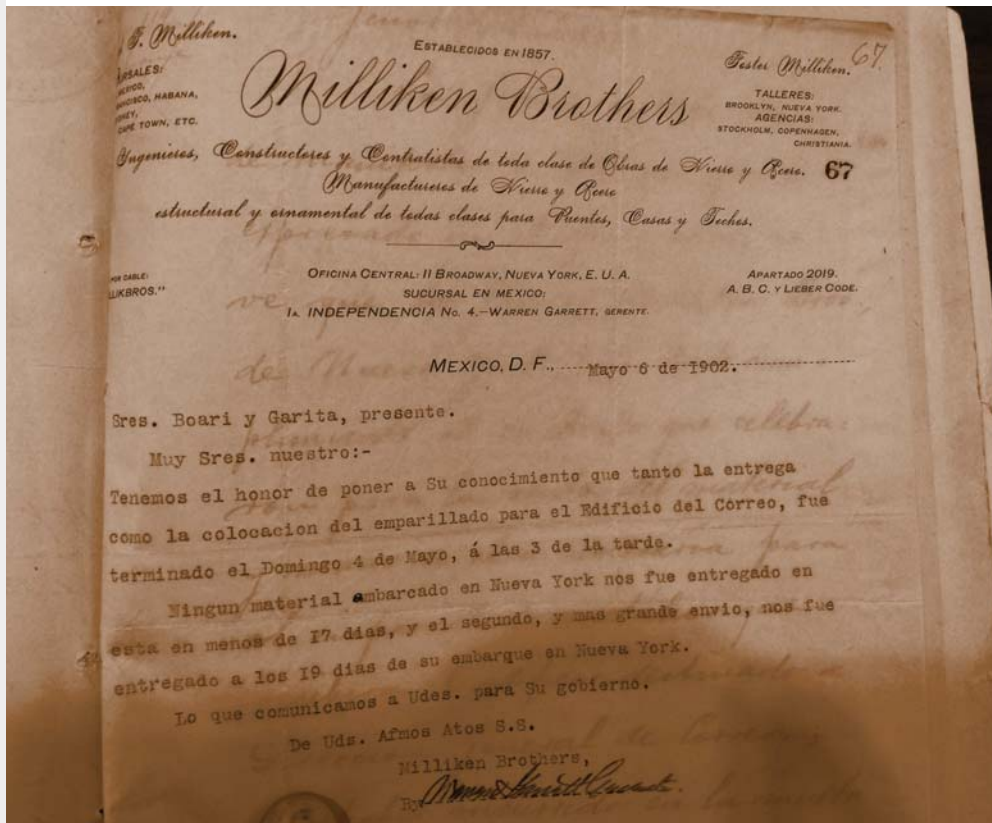 F. Milliken.
ESTABLECIDOS EN 1857.
Foster Milliken.
67.
Milliken Brothers
MEXICO,
HABANA,
CAPE TOWN, ETC.
TALLERES:
BROOKLYN, NUEVA YORK.
AGENCIAS:
STOCKHOLM, COPENHAGEN,
CHRISTIANIA.
Ingenieros, Constructores y Contratistas de toda clase de Obras de Hierro y Acero.
67
Manufactureros de Hierro y Acero
estructural y ornamental de todas clases para Puentes, Casas y Techos.
CABLE:
OFICINA CENTRAL: 11 BROADWAY, NUEVA YORK, E. U. A.
SUCURSAL EN MEXICO:
1A. INDEPENDENCIA No. 4.—WARREN GARRETT, GERENTE.
APARTADO 2019.
A. B. C. Y LIEBER CODE.
MEXICO, D. F., Mayo 6 de 1902.
Sres. Boari y Garita, presente.
Muy Sres. nuestro:-
Tenemos el honor de poner a Su conocimiento que tanto la entrega
como la colocacion del emparillado para el Edificio del Correo, fue
terminado el Domingo 4 de Mayo, á las 3 de la tarde.
Ningun material embarcado en Nueva York nos fue entregado en
esta en menos de I7 dias, y el segundo, y mas grande envio, nos fue
entregado a los I9 dias de su embarque en Nueva York.
Lo que comunicamos a Udes. para Su gobierno.
De Uds. Afmos Atos S.S.
Milliken Brothers,
By Warren Garrett Gerente.